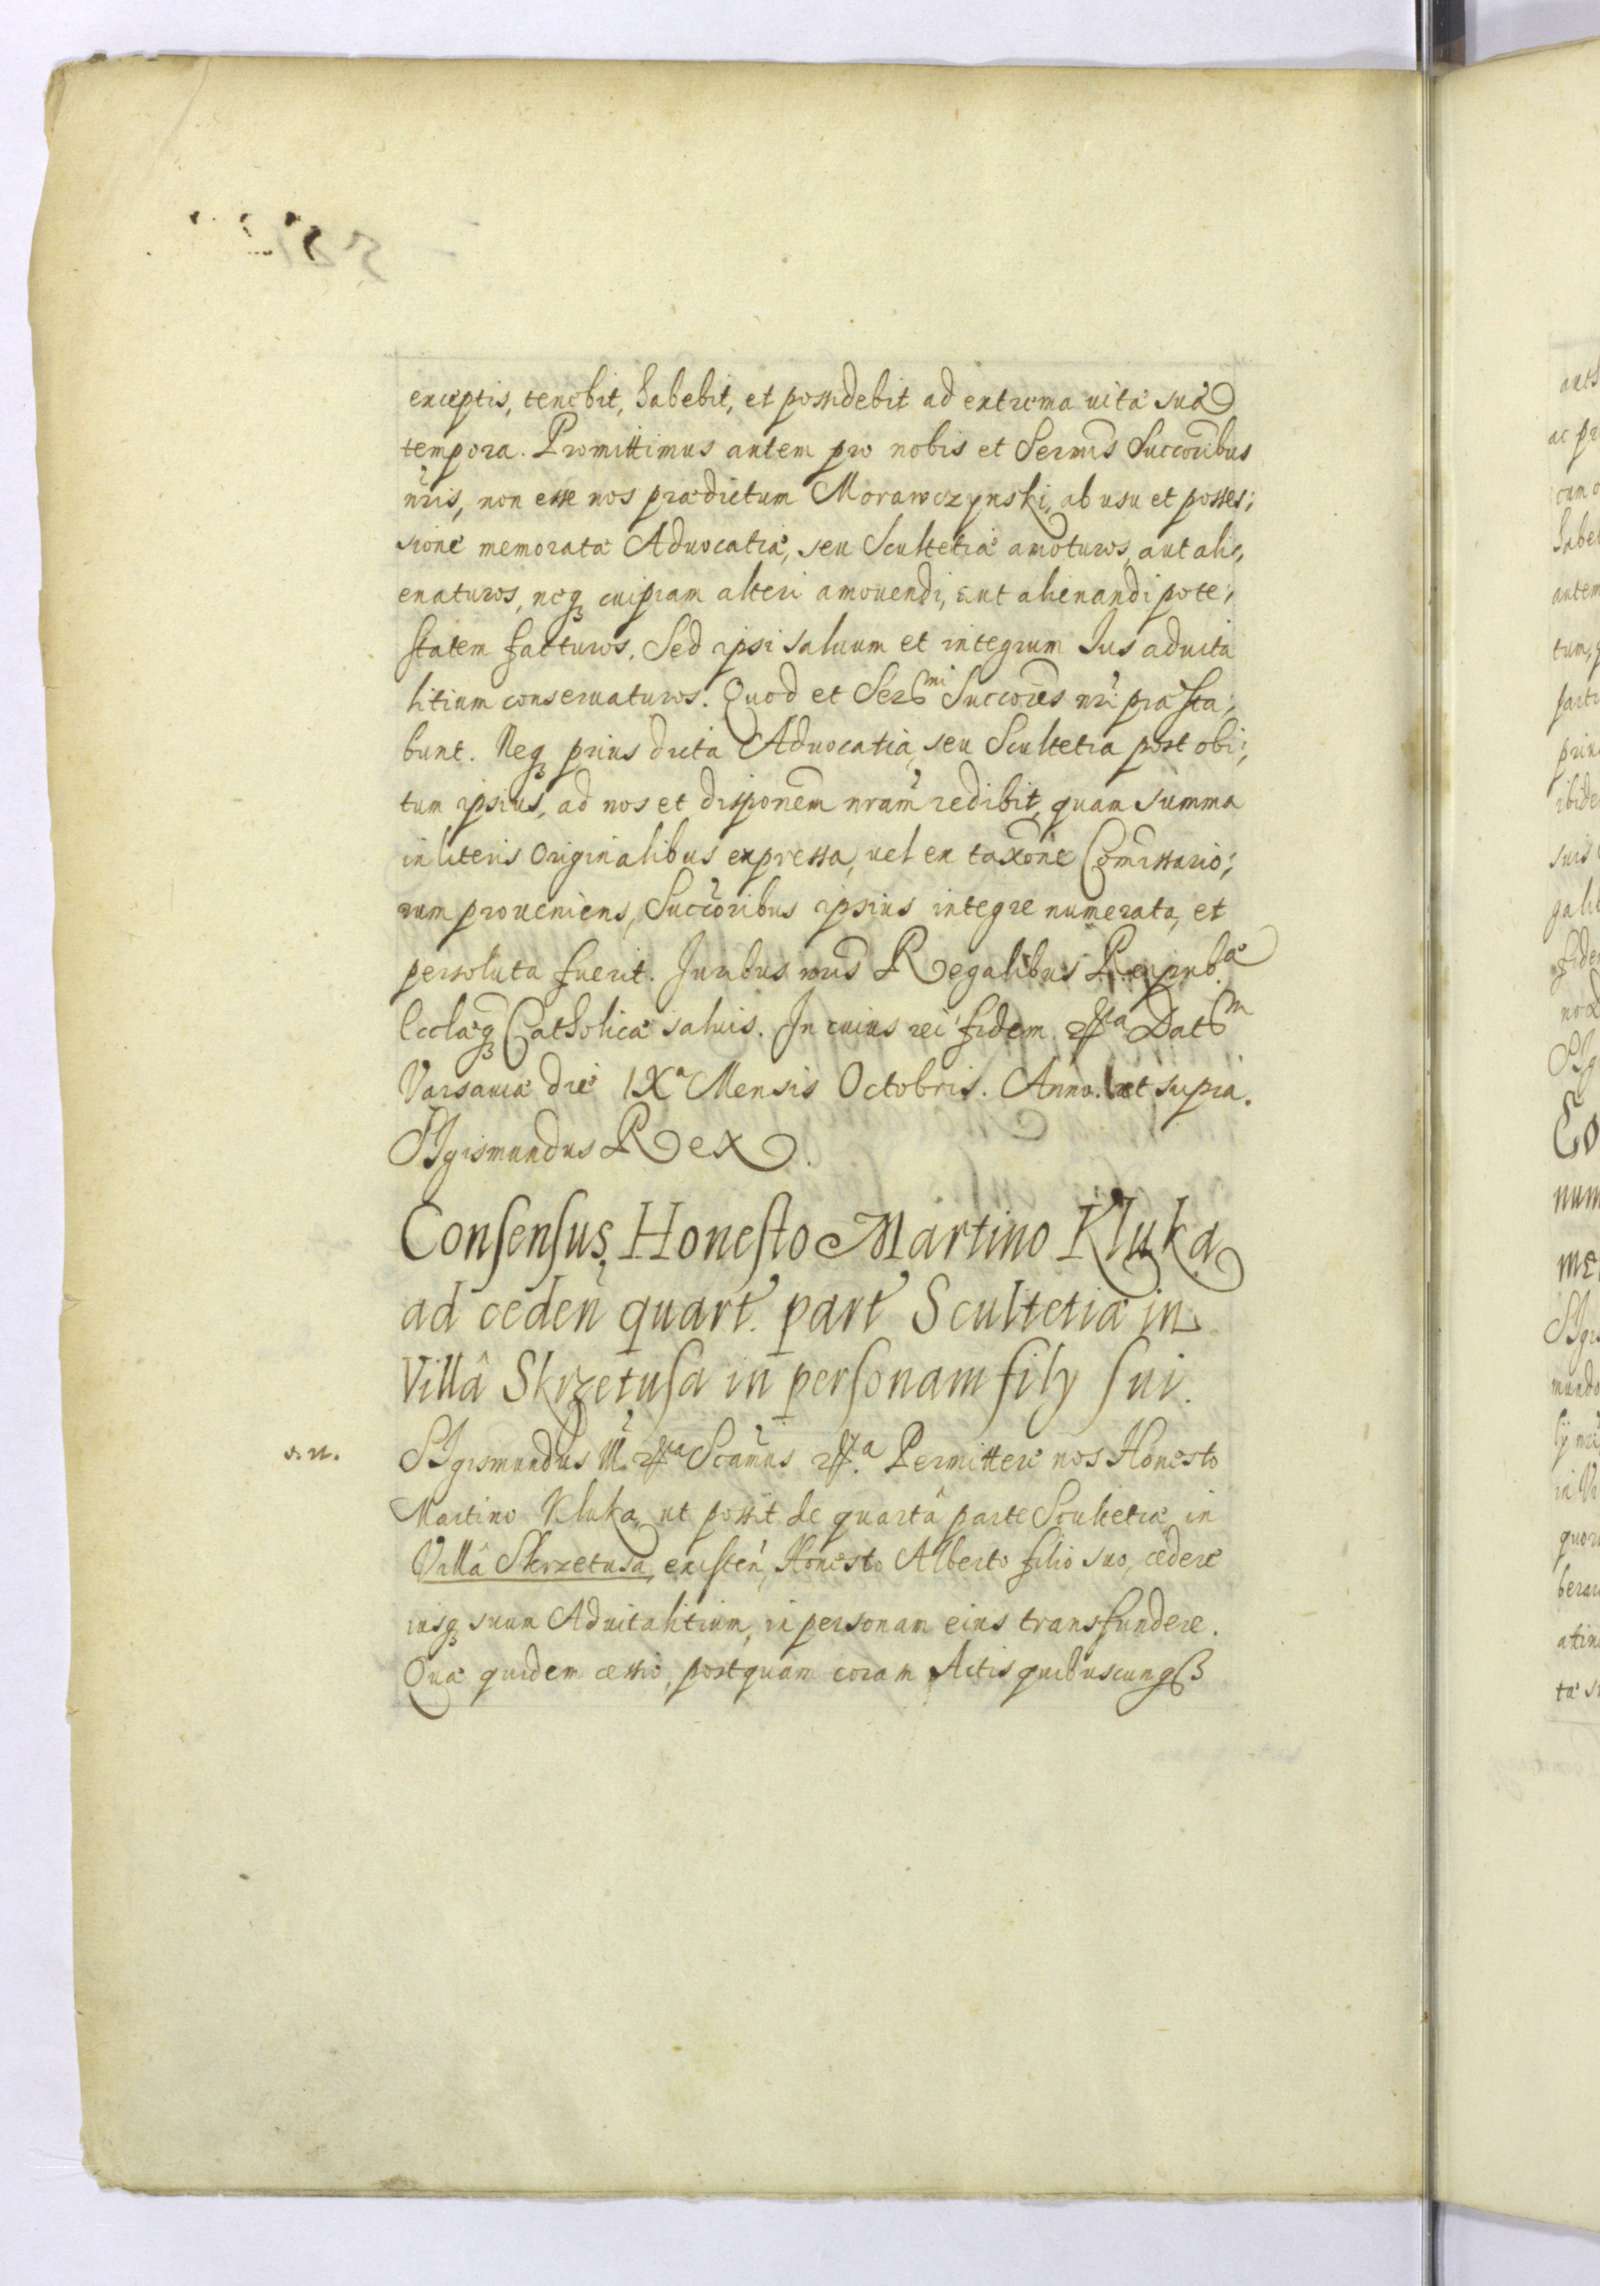 exceptis, tenebit, habebit, et possidebit ad extrema uitæ suæ
tempora. Promittimus autem pro nobis et Sermis Succoribus
nris, non esse nos prædictum Morawczynski, ab usu et posses;
sione memoratæ Aduocatiæ, seu Scultetiæ amoturos, aut alie,
enaturos, neq cuipiam alteri amouendi, aut alienandi pote;
statem facturos. Sed ipsi saluum et integrum Jus aduita
litium conseruaturos. Quod et Sermi Succores nri præsta;
bunt. Neq prius dicta Aduocatia, seu Scultetia post obi;
tum ipsius, ad nos et disponem nram redibit, quam summa
in literis Originalibus expressa, uel ex taxone Comissario;
rum proueniens, Succoribus ipsius integre numerata, et
persoluta fuerit. Juribus nris Regalibus Reipubcæ
Ecclæq Catholicæ saluis. In cuius rei fidem &ca Datm
Varsauiæ die IXa Mensis Octobris. Anno. ut supra.
SIgismundus Rex.
Consensus Honesto Martino Kluka
ad ceden quart. part Scultetiæ in
Villâ Skrzetusa in personam fily sui.
s. n. SIgismundus III. &ca Scamus &ca Permittere nos Honesto
Martino Kluka, ut possit de quartâ parte Scultetiæ in
Villâ Skrzetusa, existen, Honesto Alberto filio suo, cedere
iusq suum Aduitalitium, in personam eius transfundere.
Quæ quidem cessio, postquam coram Actis quibuscunq